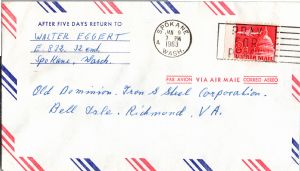 AFTER FIVE DAYS RETURN TO
WALTER EGGERT
E. 872. 32end
Spokane, Wash.
SPOKANE
JAN 9
7 PM
1963
WASH.
PRAY
FOR
PEACE
AIR MAIL
PAR AVION VIA AIR MAIL CORREO AEREO
Old Dominion Iron & Steel Corporation.
Bell Isle. Richmond, VA.